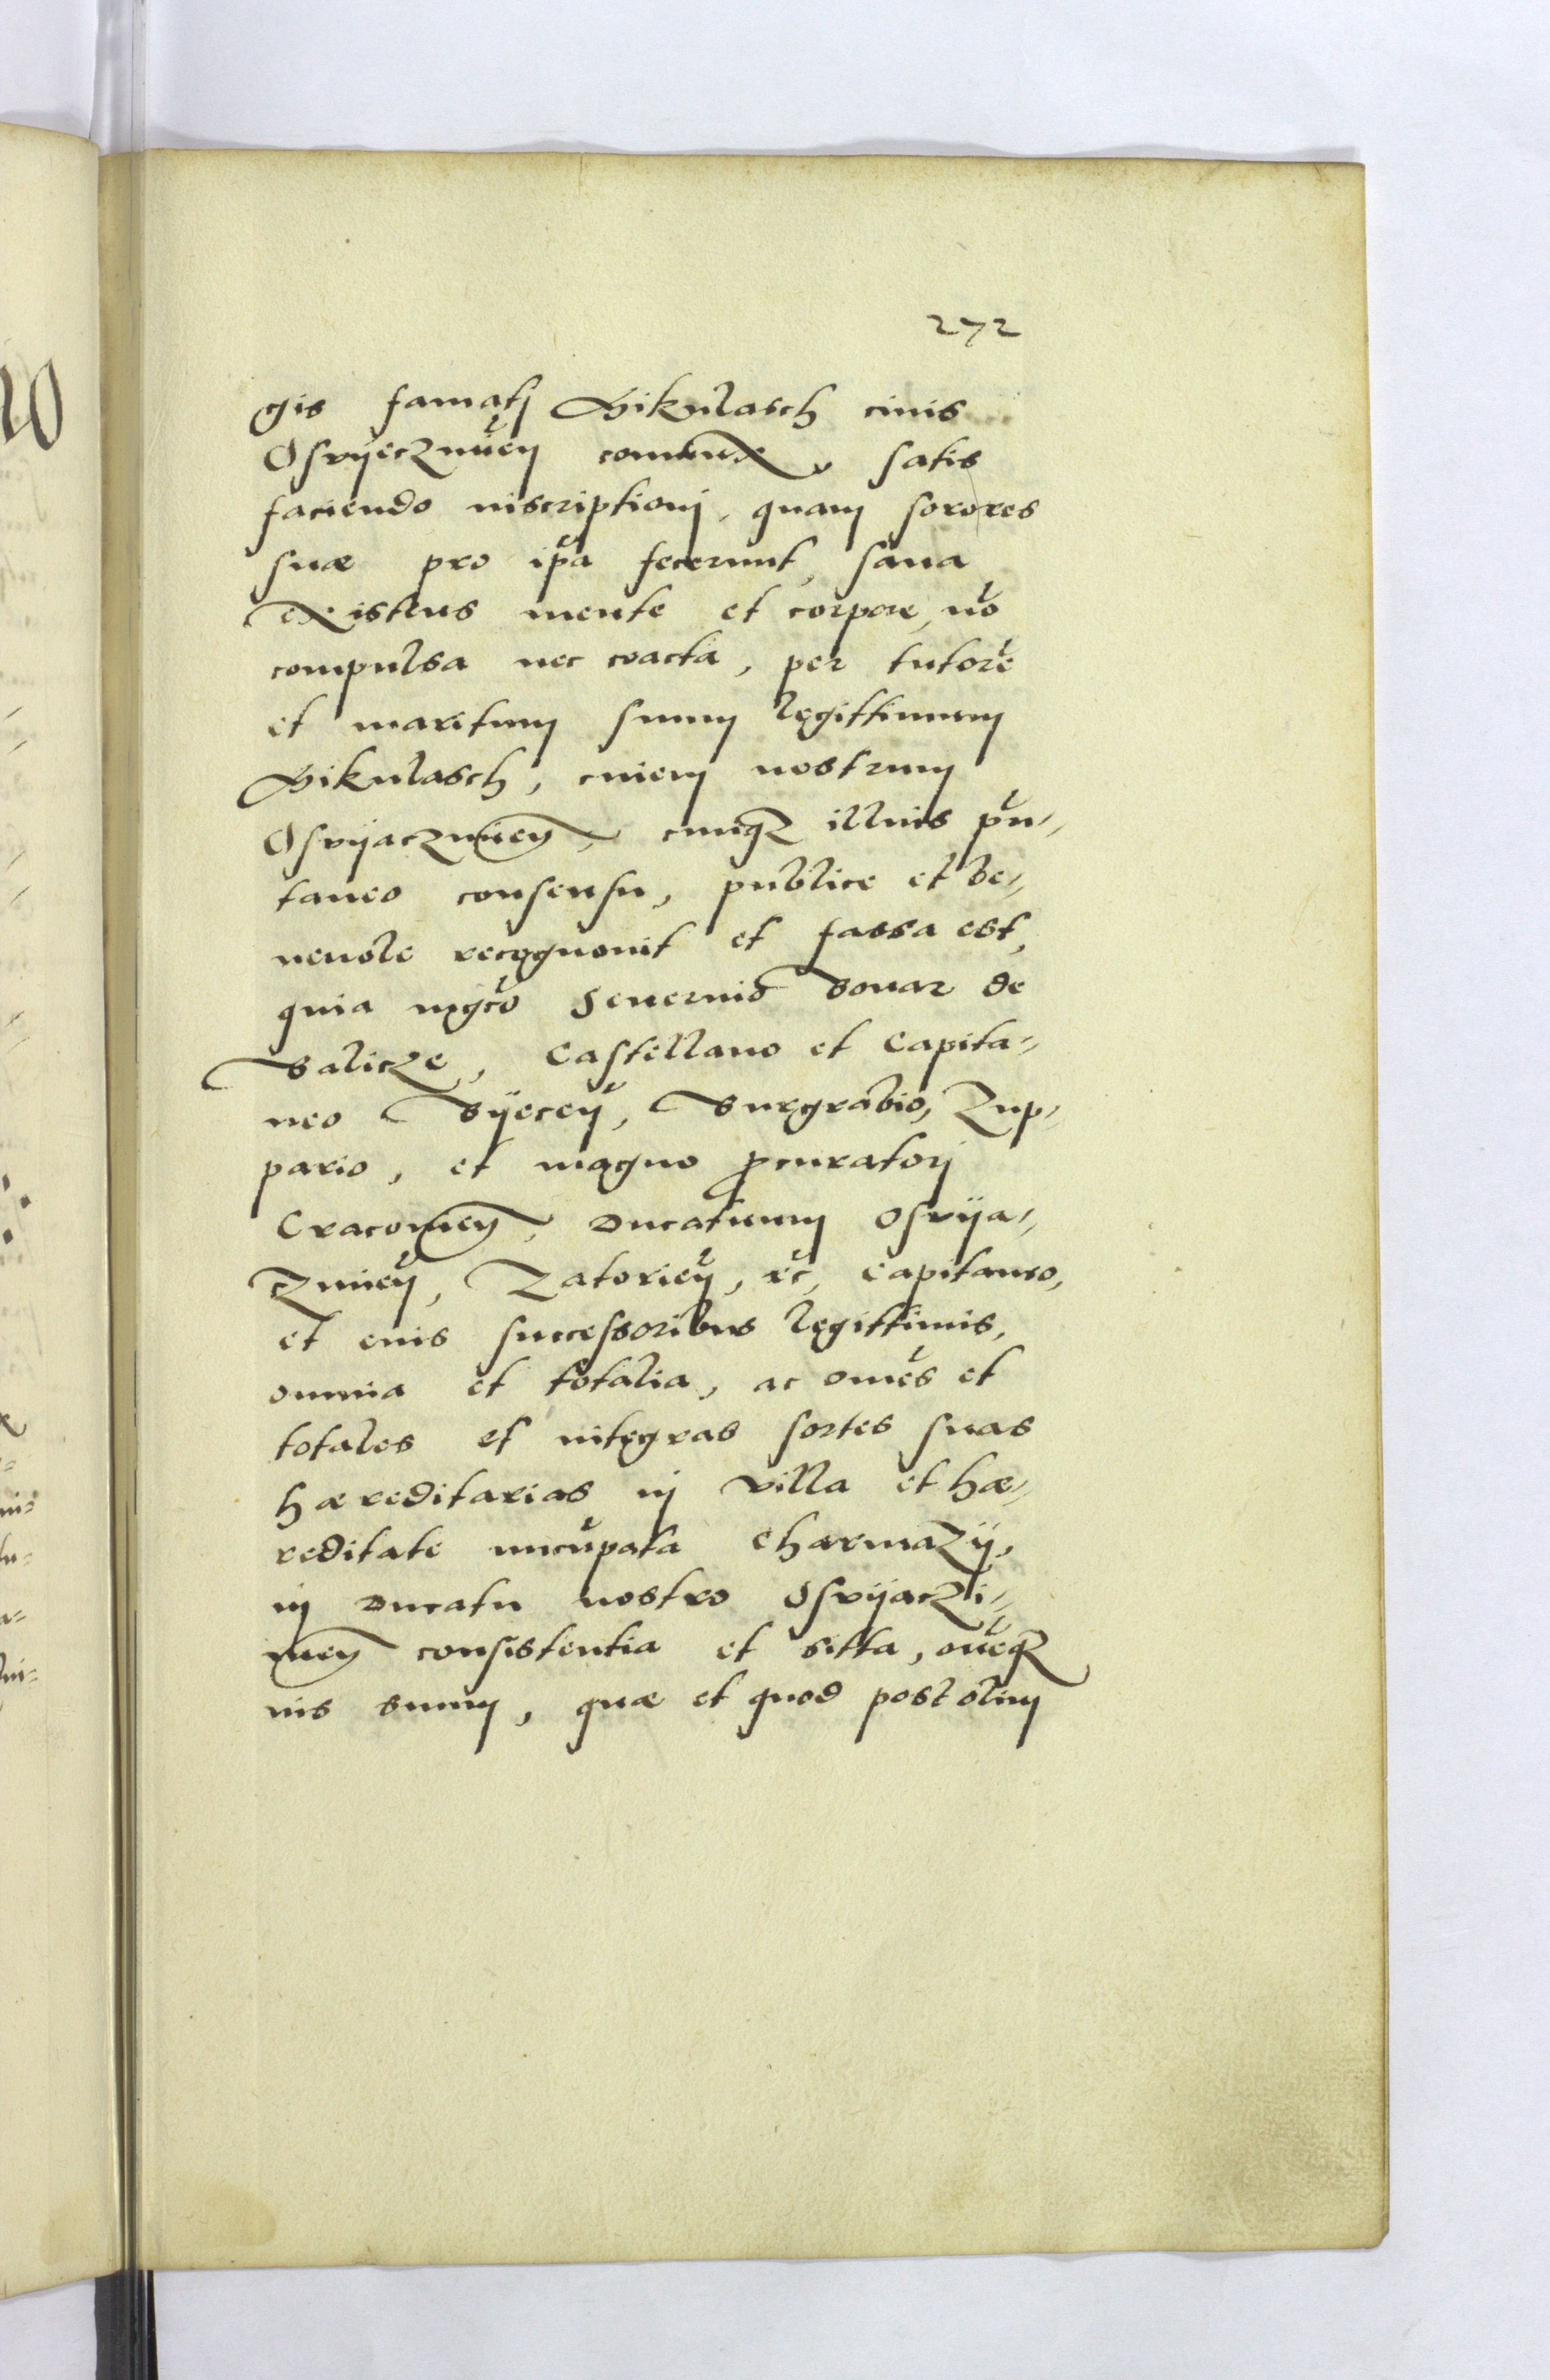 272
gis famatj Mikulasch ciuis
Osvÿecznnen̄ coniunx, satis
faciendo inscriptionj, quam sorores
suæ pro ip̄a fecerunt, sana
existens mente et corpore, nō
compulsa nec coacta, per tutorē
et maritum suum legittimum
Mikulasch, ciuem nostrum
Osvÿacznnen̄, cuiusqꝫ illius spō-
taneo consensu, publice et be-
neuole recognouit et fassa est,
quia mgc̄o Seuerino Bonar de
Balicze, Castellano et Capita-
neo Bÿecen̄, Burgrabio, Zup-
pario, et magno ꝓcuratorj
Cracouien̄, Ducatuum Osvÿa-
czimen̄, Zatorien̄, ꝛc, Capitaneo,
et eius successoribus legittimis,
omnia et totalia, ac om̄es et
totales et integras sortes suas
hæreditarias in villa et hæ-
reditate nūcupata Charmazÿ,
in Ducatu nostro Osvÿaczi-
men̄ consistentia et sitta, om̄eqꝫ
ius suum, quæ et quod post olim